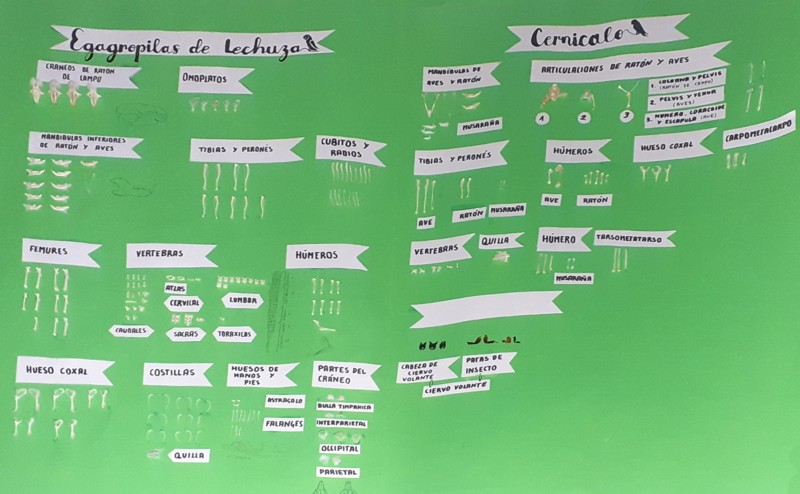 Egagropilas de Lechuza
CRANEOS DE RATÓN
DE CAMPO
OMOPLATOS
MANDÍBULAS INFERIORES
DE RATÓN Y AVES
TIBIAS Y PERONÉS
CUBITOS Y
RADIOS
FEMURES
VERTEBRAS
ATLAS
CERVICAL
LUMBAR
CAUDALES
SACRAS
TORAXICAS
HÚMEROS
HUESO COXAL
COSTILLAS
QUILLA
HUESOS DE
MANOS Y
PIES
ASTRAGALO
FALANGES
PARTES DEL
CRÁNEO
BULLA TIMPANICA
INTERPARIETAL
OCCIPITAL
PARIETAL
Cernicalo
MANDIBULAS DE
AVES Y RATÓN
MUSARAÑA
ARTICULACIONES DE RATÓN Y AVES
1
2
3
1. COLUMNA Y PELVIS
(RATÓN DE CAMPO)
2. PELVIS Y FEMUR
(AVES)
3. HUMERO, CORACOIDE
Y ESCAPULA (AVE)
TIBIAS Y PERONÉS
AVE
RATÓN
MUSARAÑA
HÚMEROS
AVE
RATÓN
HUESO COXAL
CARPOMETACARPO
VERTEBRAS
QUILLA
HÚMERO
MUSARAÑA
TARSOMETATARSO
CABEZA DE
CIERVO
VOLANTE
PATAS DE
INSECTO
CIERVO VOLANTE